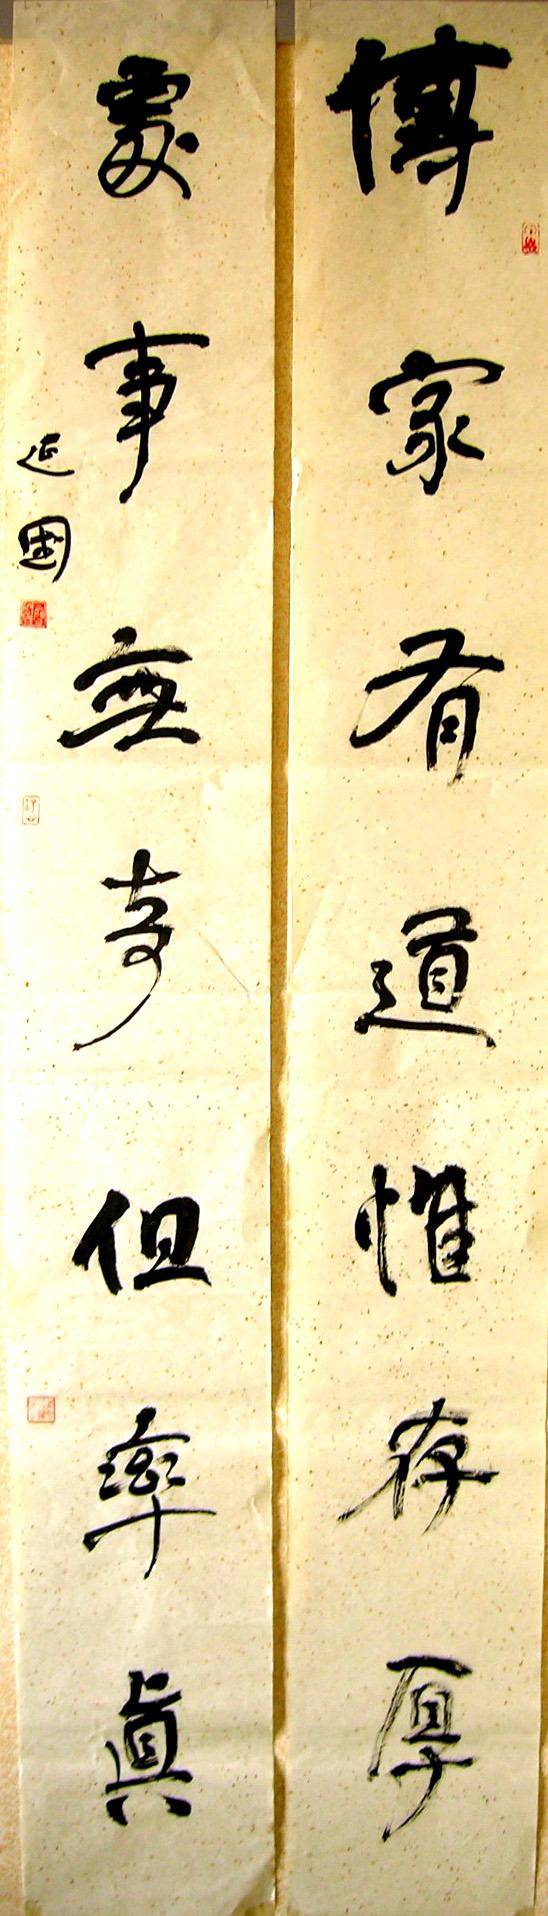 傳家有道惟存厚
處事無奇但率真
延国